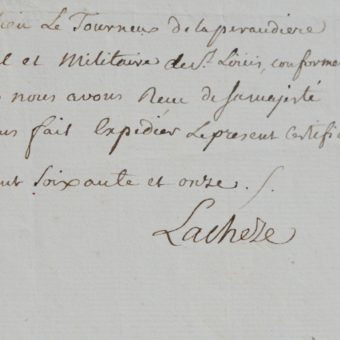 Le Tourneux de la peraudiere
l et Militaire de St. Louis, conforme
nous avons Receu de sa majesté
us fait Expédier Le present Certifi
nt Soixante et onze ./.
Lacheze